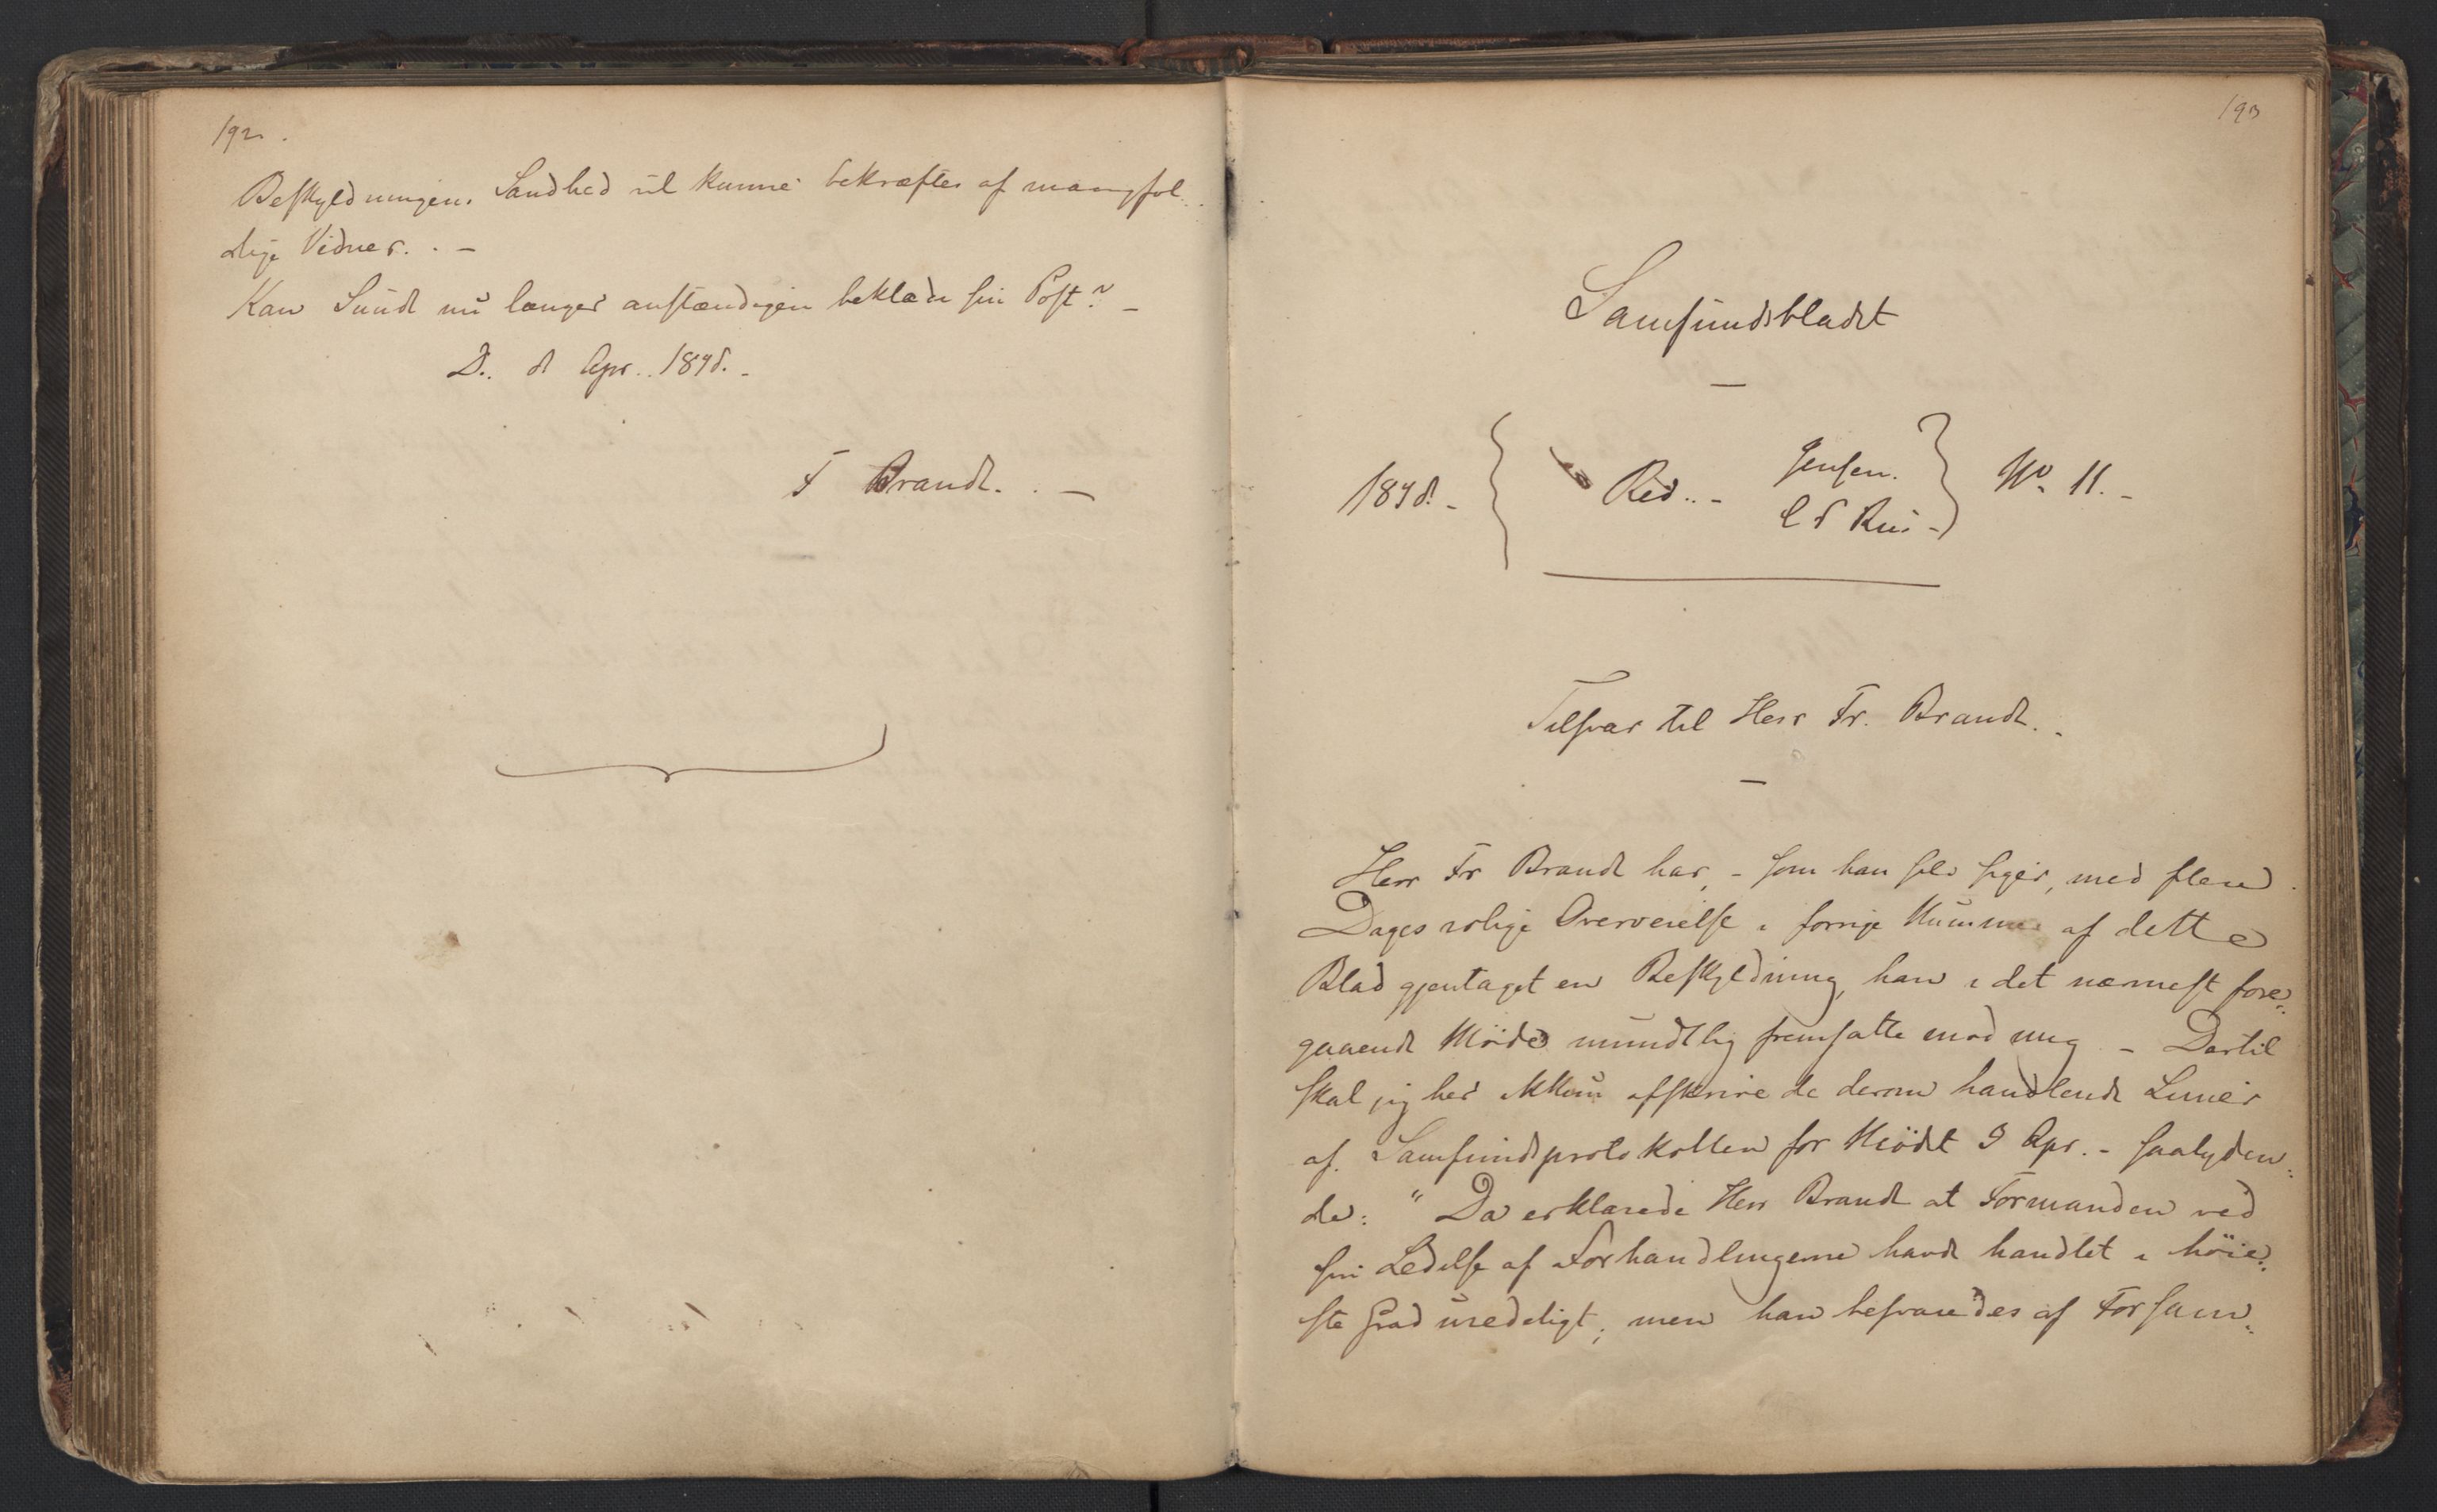 192.
Beskyldningens Sandhed vil kunne bekræftes af mangfol-
dige Vidner. . -
Kan Sundt nu længer anstændigen beklæde sin Post? -
D. d Apr. 1848. -
F Brandt. . -
193
Samfundsbladet
-
1848. - Red.. - Jensen. No 11. -
Tilsvar til Herr Fr. Brandt. .
-
Herr Fr Brandt har, - som han selv siger, med flere
Dages rolige Overveielse i forrige Nummer af dette
Blad gjentaget en Beskyldning, han i det nærmest fore-
gaaende Möde mundtlig fremsatte mod mig - Dertil
skal jeg her afskrive de derom handlende Linier
af Samfundsprotokollen for Mödet 9 Apr. - saalyden-
de: "Da erklærede Herr Brandt at Formanden ved
sin Ledelse af Forhandlingerne havde handlet i höie-
ste Grad uredeligt; men han besvaredes af Forsam-